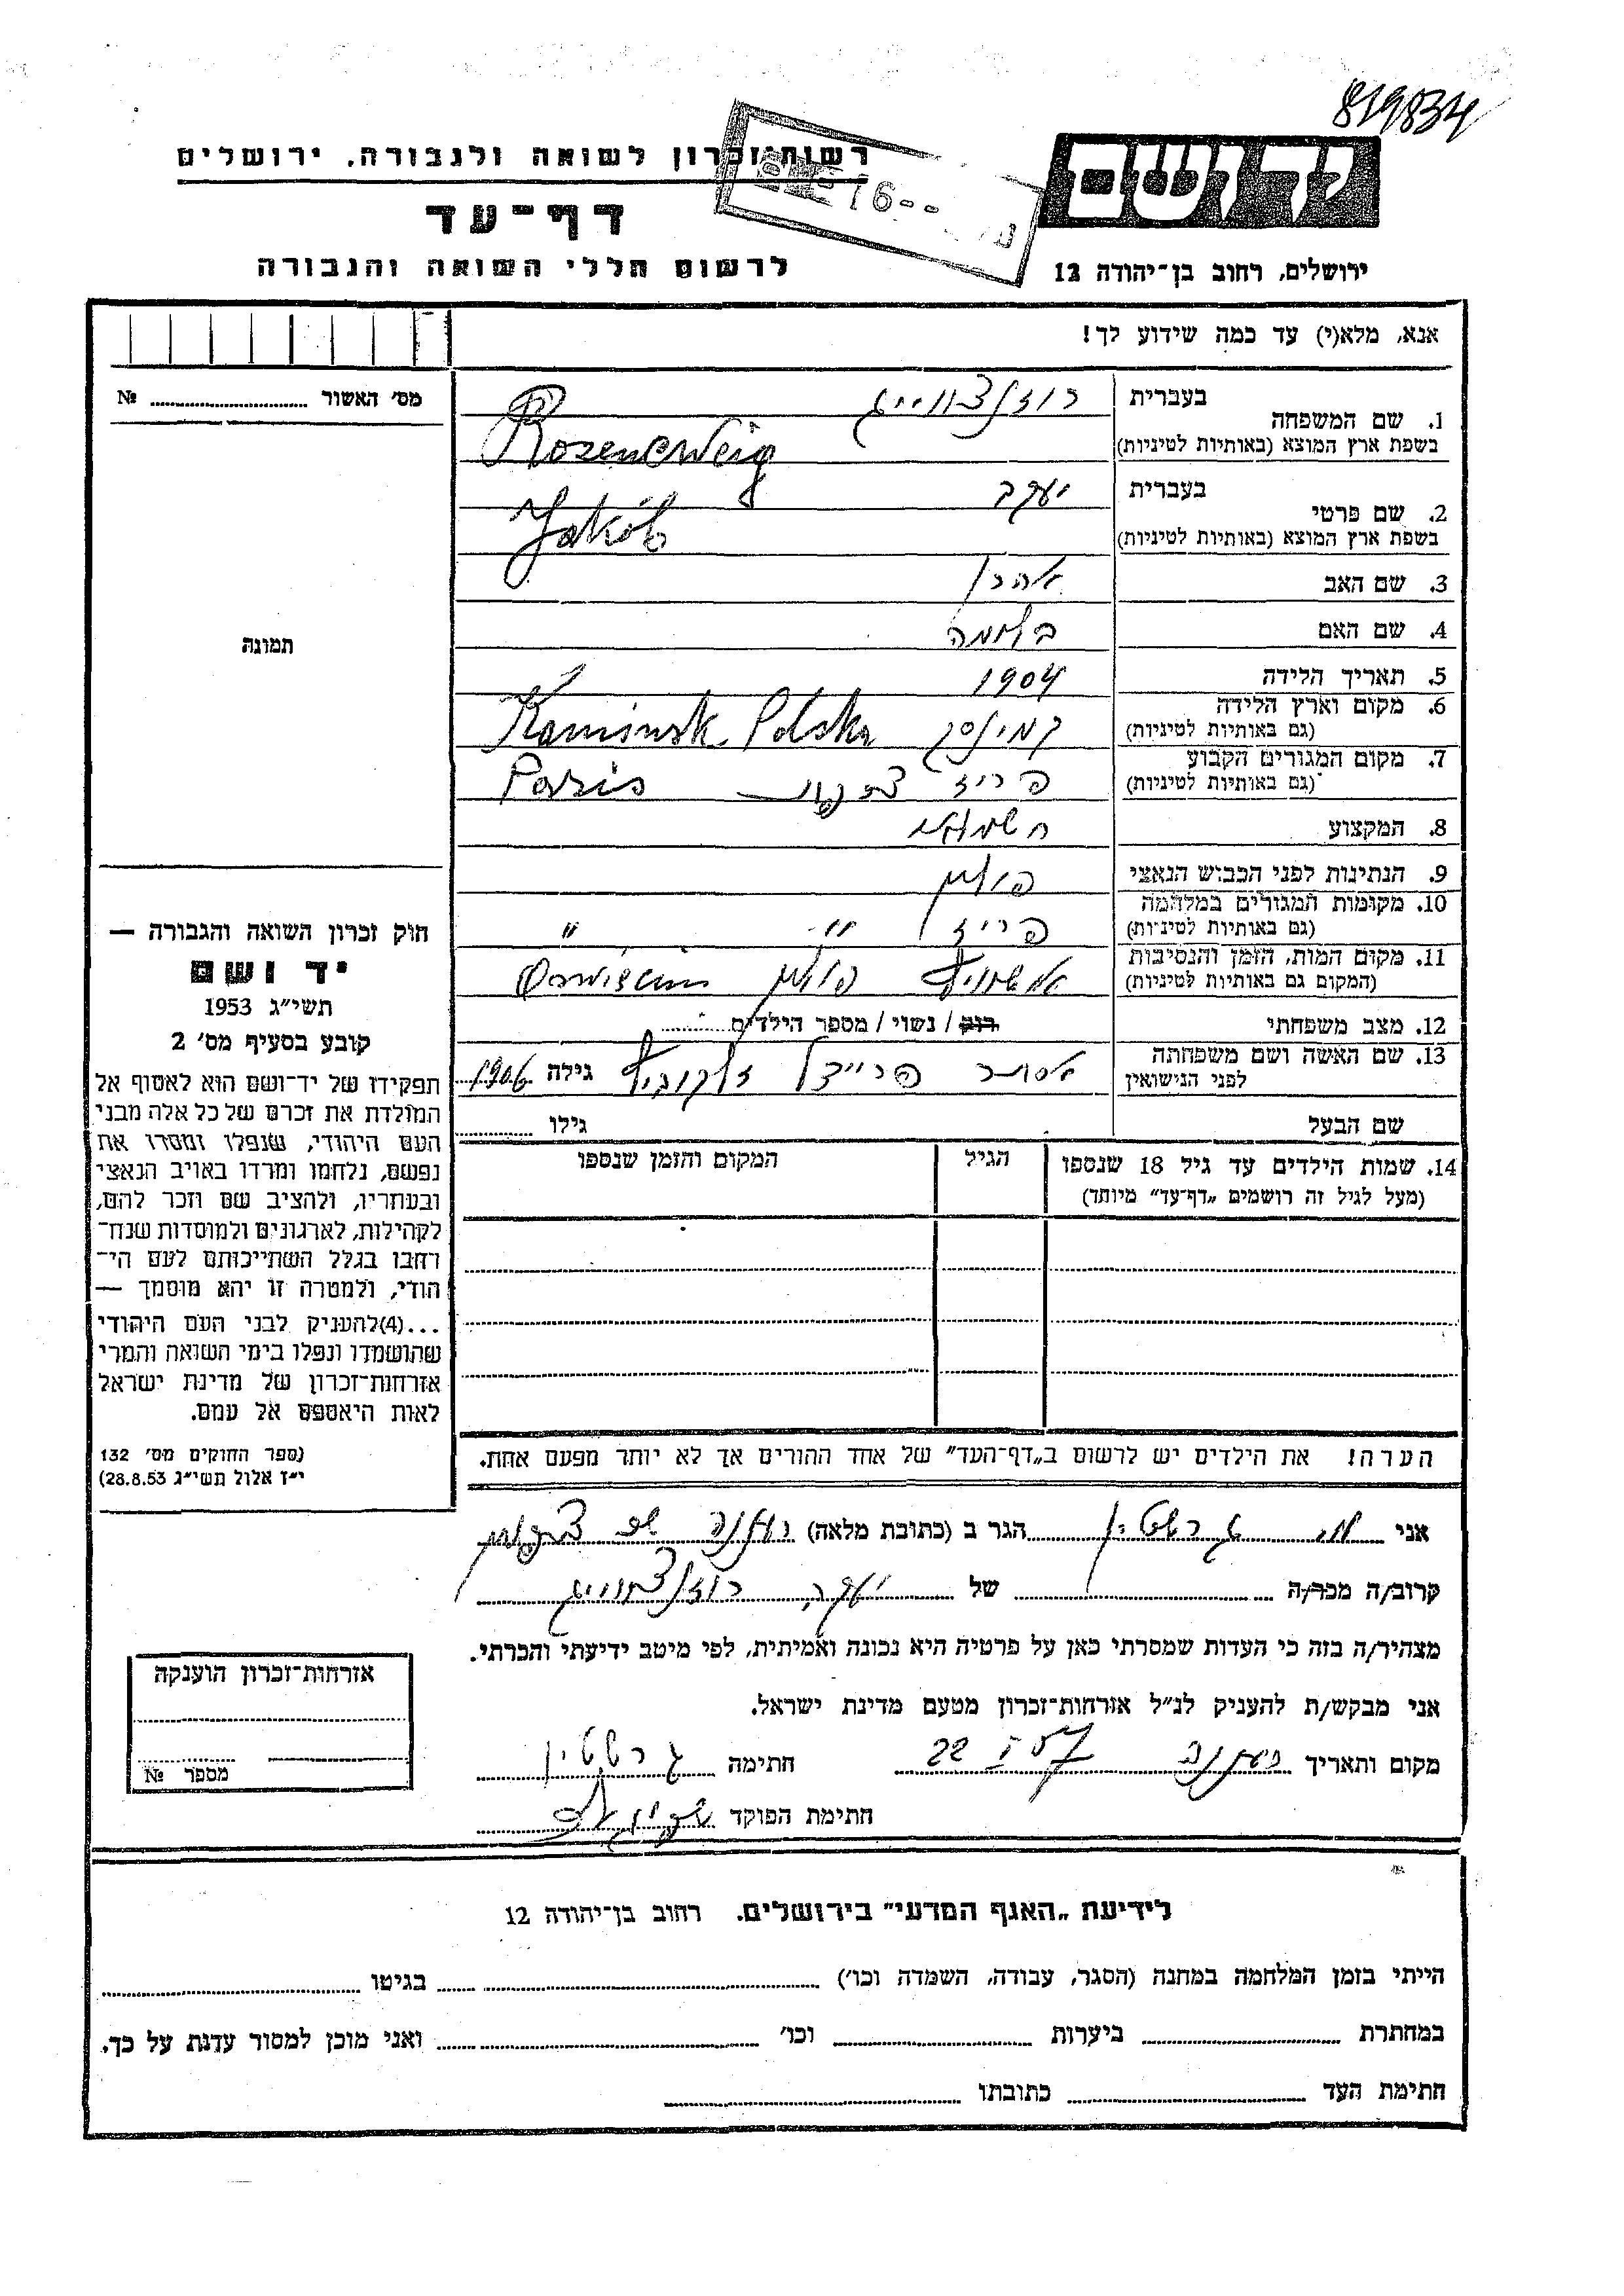 819834
רשות-זכרון לשואה ולגבורה, ירושלים
יד ושם
דף-עד
לרשום חללי השואה והגבורה
ירושלים, רחוב בן-יהודה 12
אנא, מלא(י) עד כמה שידוע לך!
מס' האשור № ........
בעברית רוזנצווייג
1. שם המשפחה
בשפת ארץ המוצא (באותיות לטיניות) Rozencweig
בעברית יעקב
2. שם פרטי
בשפת ארץ המוצא (באותיות לטיניות) Jakób
3. שם האב אהרן
4. שם האם
תמונה
5. תאריך הלידה 1904
6. מקום וארץ הלידה
(גם באותיות לטיניות) קמינסק Kaminsk Polska
7. מקום המגורים הקבוע
(גם באותיות לטיניות) פריז צרפת Paris
8. המקצוע חשמלאי
9. הנתינות לפני הכבוש הנאצי פולין
10. מקומות המגורים במלחמה
(גם באותיות לטיניות) פריז " "
11. מקום המות, הזמן והנסיבות
(המקום גם באותיות לטיניות) אושוויץ פולין
12. מצב משפחתי רוק / נשוי / מספר הילדים ........
13. שם האשה ושם משפחתה
לפני הנישואין אסתר פריידל גילה 1906
שם הבעל גילו ........
14. שמות הילדים עד גיל 18 שנספו הגיל המקום והזמן שנספו
(מעל לגיל זה רושמים „דף-עד" מיוחד)
חוק זכרון השואה והגבורה —
יד ושם
תשי"ג 1953
קובע בסעיף מס' 2
תפקידו של יד-ושם הוא לאסוף אל
המולדת את זכרם של כל אלה מבני
העם היהודי, שנפלו ומסרו את
נפשם, נלחמו ומרדו באויב הנאצי
ובעוזריו, ולהציב שם וזכר להם,
לקהילות, לארגונים ולמוסדות שנח-
רחבו בגלל השתייכותם לעם הי-
הודי, ולמטרה זו יהא מוסמך —
...(4)להעניק לבני העם היהודי
שהושמדו ונפלו בימי השואה והמרי
אזרחות-זכרון של מדינת ישראל
לאות היאספם אל עמם.
(ספר החוקים מס' 132
י"ז אלול תשי"ג 28.8.53)
הערה! את הילדים יש לרשום ב„דף-העד" של אחד ההורים אך לא יותר מפעם אחת.
אני גרשטיין הגר ב (כתובת מלאה) רעננה
קרוב/ה מכר/ה ........ של יעקב רוזנצווייג
מצהיר/ה בזה כי העדות שמסרתי כאן על פרטיה היא נכונה ואמיתית, לפי מיטב ידיעתי והכרתי.
אני מבקש/ת להעניק לנ"ל אזרחות-זכרון מטעם מדינת ישראל.
מקום ותאריך רעננה 22 I 57 חתימה גרשטיין
חתימת הפוקד
אזרחות-זכרון הוענקה
מספר №
לידיעת „האגף המדעי" בירושלים. רחוב בן-יהודה 12
הייתי בזמן המלחמה במחנה (הסגר, עבודה, השמדה וכו') ........ בגיטו ........
במחתרת ........ ביערות ........ וכו' ........ ואני מוכן למסור עדות על כך.
חתימת העד ........ כתובתו ........